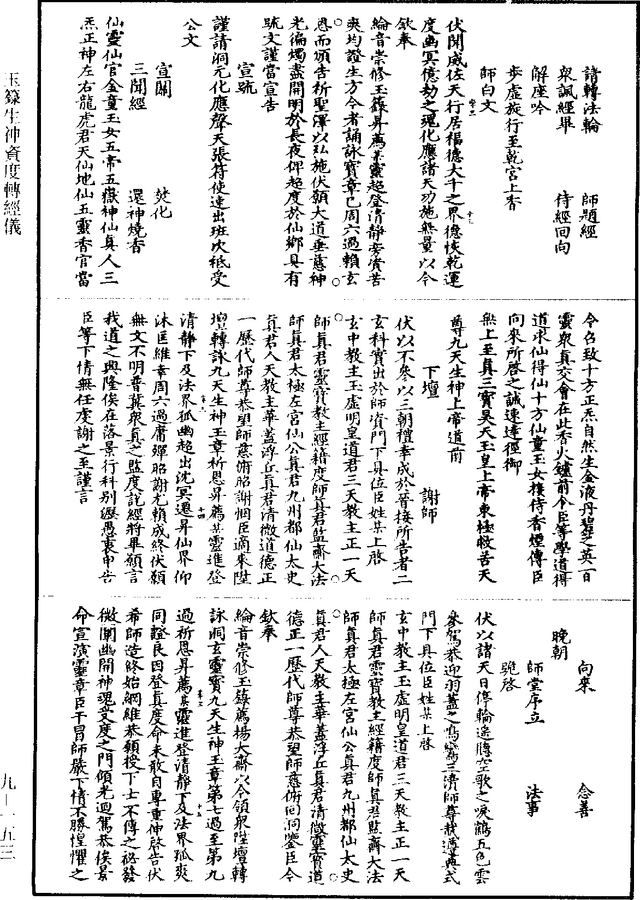 諸轉法輪　師題經
衆諷經畢　侍經回向
解座吟
步虛旋行至乾宮上香
師白文
伏聞威佐天行居福德大千之界德恢乾運
度幽冥億劫之魂化應諸天功施無量以今
欽奉
綸音崇修玉籙昇薦某靈超登清靜旁資苦
爽均證生方今者誦詠寶章已周六過賴玄
恩而頒告祈聖澤以弘施伏願大道垂慈神
光徧燭盡開明於長夜俾超度於仙鄉具有
號文謹當宣告
宣號
謹請洞元化應聲天張符使速出班次祗受
公文
宣關　焚化
三聞經　還神燒香
仙靈仙官金童玉女五帝五嶽神仙真人三
炁正神左右龍虎君天仙地仙五靈香官當
令召致十方正炁自然生金液丹碧芝英百
靈衆真交會在此香火鑪前令臣等學道得
道求仙得仙十方仙童玉女接侍香煙傳臣
向來所啓之誠速達徑御
無上至真三寶昊天玉皇上帝東極救苦天
尊九天生神上帝道前
下壇　謝師
伏以不參以三朝禮奉成於普接所告者二
玄科實出於師資門下具位臣姓某上啓
玄中教主玉虛明皇道君三天教主正一天
師真君靈寶教主經籍度師真君監齋大法
師真君太極左宮仙公真君九州都仙太史
真君人天教主華蓋浮丘真君清微道德正
一歷代師尊恭望師慈俯昭謝悃臣適來陞
壇轉詠九天生神玉章祈恩昇薦某靈進登
清靜下及法界孤幽超出沈冥遷昇仙界仰
沐匡維幸周六過膚殫昭謝尤賴成終伏願
無文不明普冀衆真之監度說經將畢願言
我道之興隆俟在落景行科别瀝愚衷申告
臣等下情無任虔謝之至謹言
向來　念善
晚朝
師堂序立　法事
跪啓
伏以諸天日停輪逸騰空歌之唳鶴五色雲
參駕恭迎羽蓋之鳴鸞三濟師尊哉遵典式
門下具位臣姓某上啓
玄中教主玉虛明皇道君三天教主正一天
師真君靈寶教主經籍度師真君監齋大法
師真君太極左宮仙公真君九州都仙太史
真君人天教主華蓋浮丘真君清微靈寶道
德正一歷代師尊恭望師慈俯回洞鑒臣今
欽奉
綸音崇修玉籙薦揚大齋以今領衆陞壇轉
詠洞玄靈寶九天生神玉章第七過至第九
過祈恩昇薦某靈進登清靜下及法界孤爽
同證良因登真度命未敢自專重伸啓告伏
希師造終始綱維恭願授下士不傳之祕發
微闡幽開神魂受度之門傾光迴駕恭俟景
命宣演靈章臣干冒師嚴下情不勝惶懼之
玉籙生神資度轉經儀
九—一五三